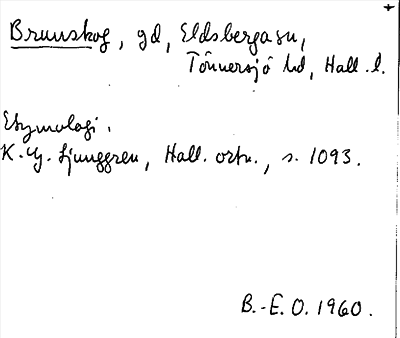 Brunskog, gd, Eldsberga sn,
Tönnersjö hd, Hall. l.
Etymologi.
K. G. Ljunggren, Hall. ortn., s. 1093.
B.-E. O. 1960.